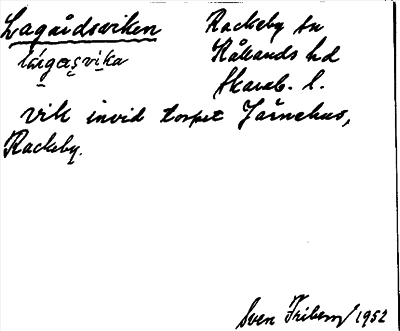 Lagårdsviken Rackeby sn
lágaṣvika Kållands hd
Skarab. l.
Vik invid torpet Järnehus,
Rackeby.
Sven Friberg 1952